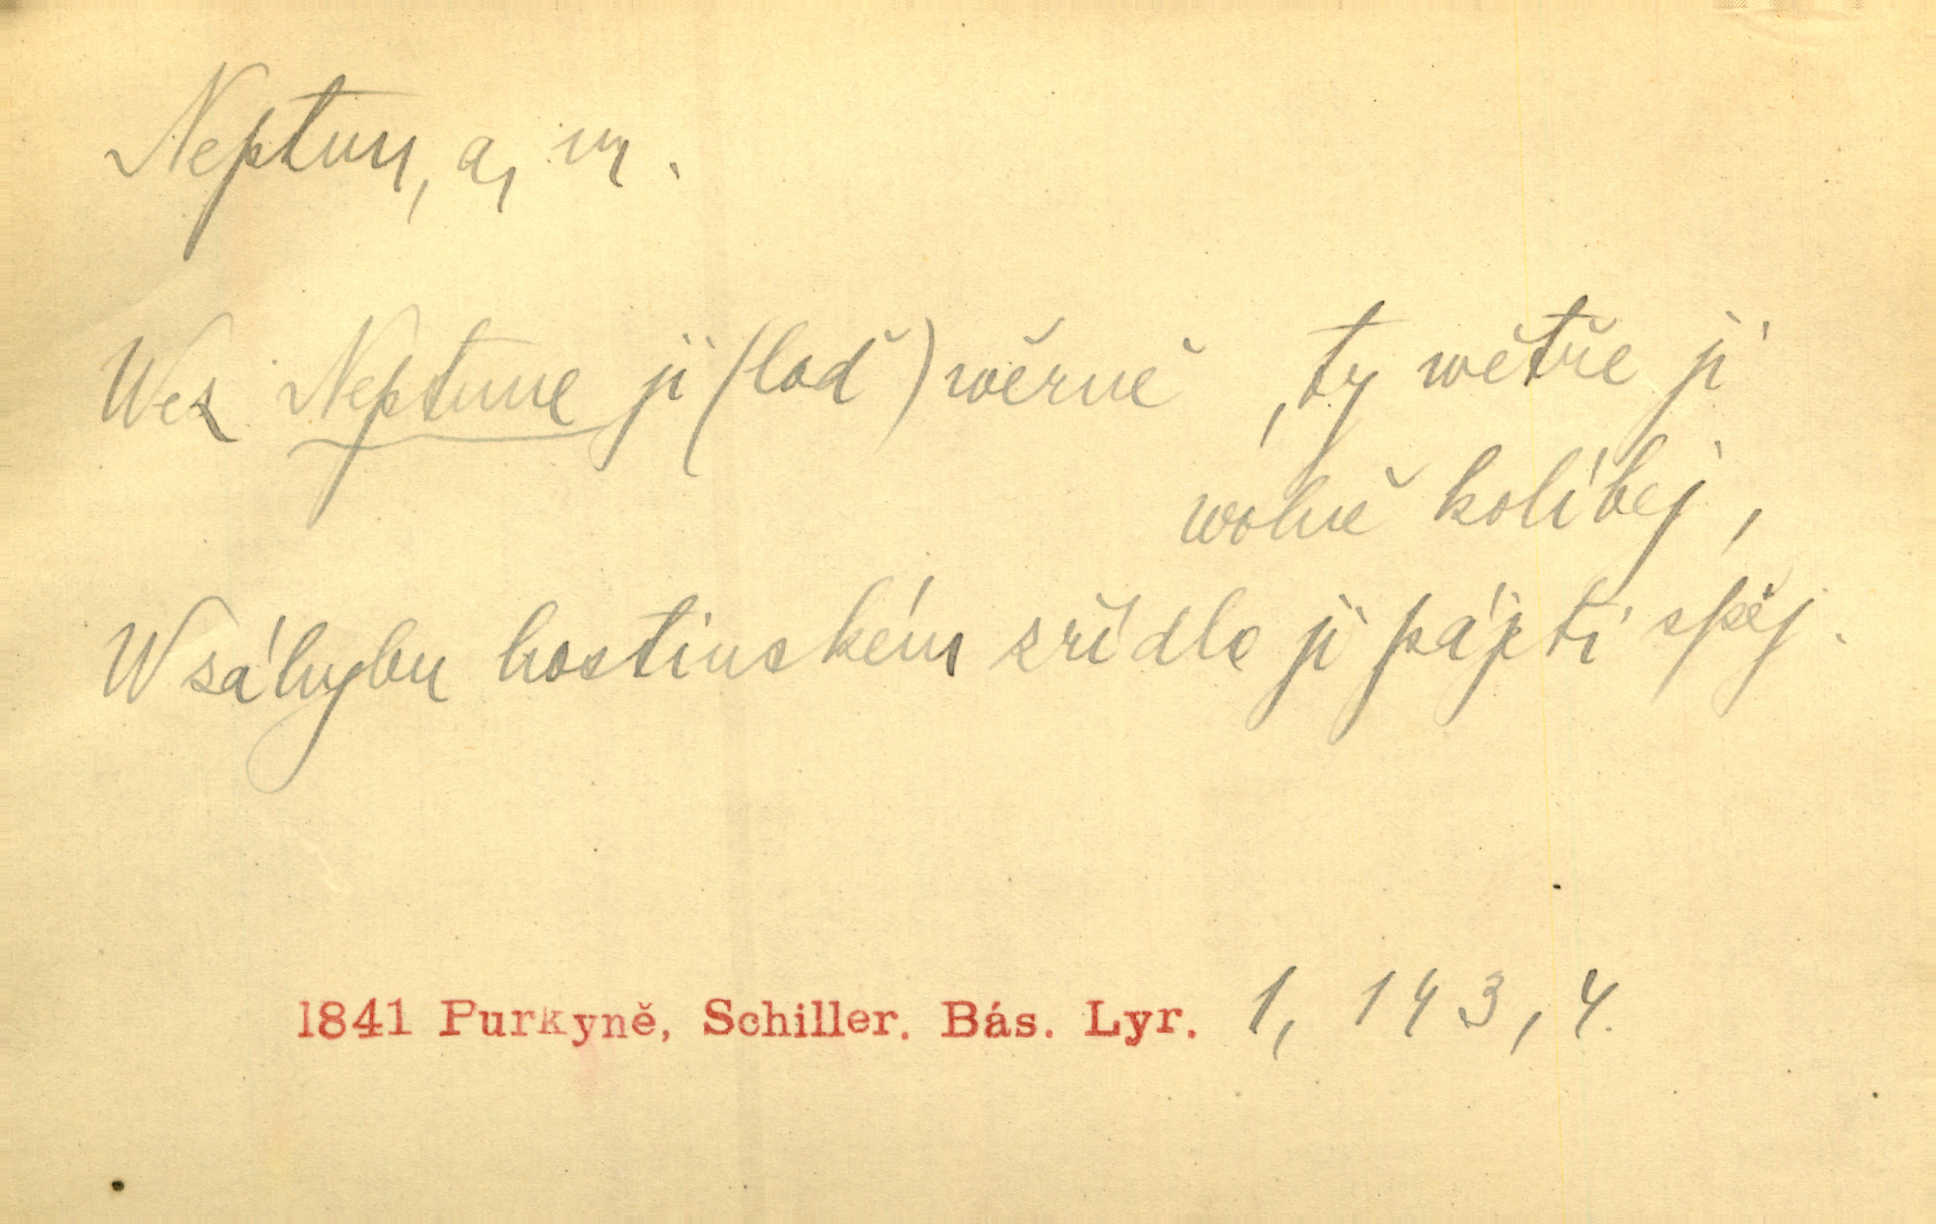 Neptun, a, m.
Wez Neptune ji (loď) wěrně, ty wětře ji
wolně kolíbej,
W záhybu hostinském zřídlo ji spěj.
1841 Purkyně, Schiller. Bás. Lyr. 1, 143, 4.